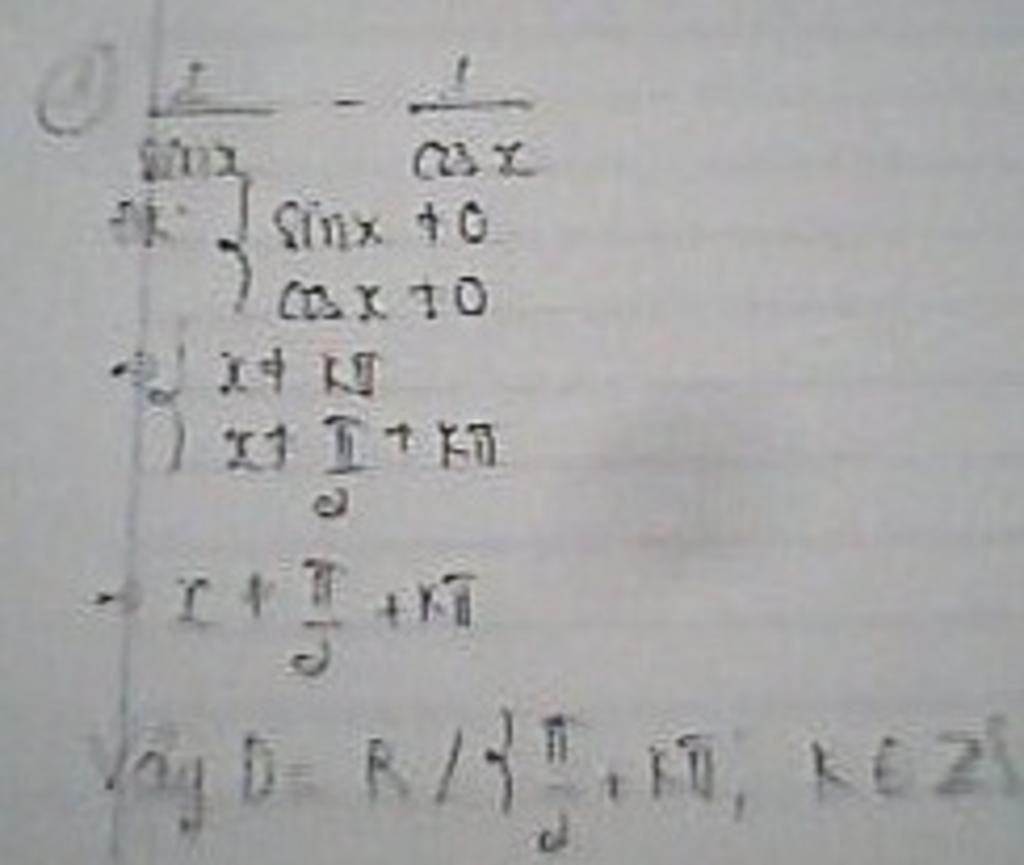 ① 1/sinx - 1/cosx
ĐK: { sinx ≠ 0
cosx ≠ 0
→ { x ≠ kπ
x ≠ π/2 + kπ
→ x ≠ π/2 + kπ
Vậy D = R / { π/2 + kπ; k ∈ Z }